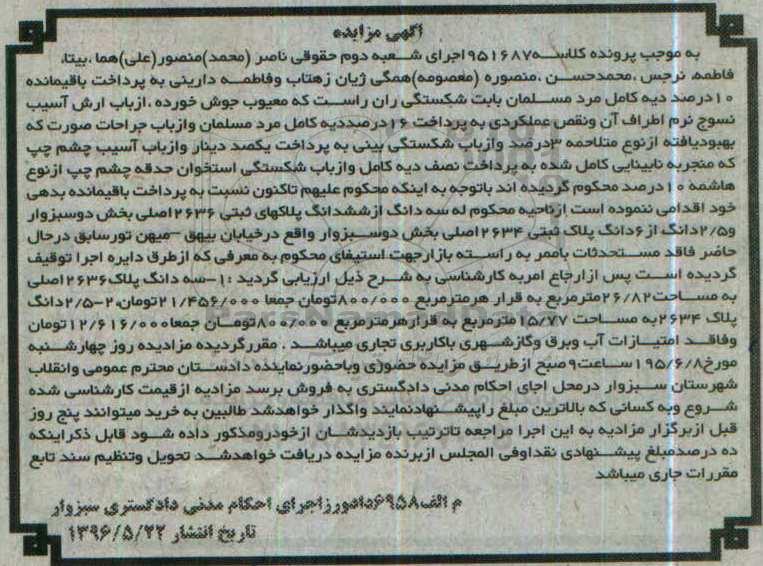 آگهی مزایده
به موجب پرونده کلاسه ۹۵۱۶۸۷ اجرای شعبه دوم حقوقی ناصر (محمد)منصور(علی)هما ،بیتا،
فاطمه، نرجس ،محمدحسن ،منصوره (معصومه)همگی ژیان زهتاب وفاطمه دارینی به پرداخت باقیمانده
۱۰درصد دیه کامل مرد مسلمان بابت شکستگی ران راست که معیوب جوش خورده ،ازباب ارش آسیب
نسوج نرم اطراف آن ونقص عملکردی به پرداخت ۱۶درصددیه کامل مرد مسلمان وازباب جراحات صورت که
بهبودیافته ازنوع متلاحمه ۳درصد وازباب شکستگی بینی به پرداخت یکصد دینار وازباب آسیب چشم چپ
که منجربه نابینایی کامل شده به پرداخت نصف دیه کامل وازباب شکستگی استخوان حدقه چشم چپ ازنوع
هاشمه ۱۰درصد محکوم گردیده اند باتوجه به اینکه محکوم علیهم تاکنون نسبت به پرداخت باقیمانده بدهی
خود اقدامی ننموده است ازناحیه محکوم له سه دانگ ازششدانگ پلاکهای ثبتی ۲۶۳۶اصلی بخش دوسبزوار
و۲/۵دانگ از ۶دانگ پلاک ثبتی ۲۶۳۴اصلی بخش دوسبزوار واقع درخیابان بیهق –میهن تورسابق درحال
حاضر فاقد مستحدثات باممر به راسته بازارجهت استیفای محکوم به معرفی که ازطرق دایره اجرا توقیف
گردیده است پس ازارجاع امربه کارشناسی به شرح ذیل ارزیابی گردید :۱-سه دانگ پلاک۲۶۳۶اصلی
به مساحت۲۶/۸۲مترمربع به قرار هرمترمربع ۸۰۰/۰۰۰تومان جمعا ۲۱/۴۵۶/۰۰۰تومان،۲-۲/۵دانگ
پلاک ۲۶۳۴به مساحت ۱۵/۷۷مترمربع به قرارهرمترمربع ۸۰۰/۰۰۰تومان جمعا۱۲/۶۱۶/۰۰۰تومان
وفاقد امتیازات آب وبرق وگازشهری باکاربری تجاری میباشد . مقررگردیده مزادیده روز چهارشنبه
مورخ۹۵/۶/۸ ساعت۹صبح ازطریق مزایده حضوری وباحضورنماینده دادستان محترم عمومی وانقلاب
شهرستان سبزوار درمحل اجای احکام مدنی دادگستری به فروش برسد مزادبه ازقیمت کارشناسی شده
شروع وبه کسانی که بالاترین مبلغ راپیشنهادنمایند واگذار خواهدشد طالبین به خرید میتوانند پنج روز
قبل ازبرگزار مزادیه به این اجرا مراجعه تاترتیب بازدیدشان ازخودرومذکور داده شود قابل ذکراینکه
ده درصدمبلغ پیشنهادی نقداوفی المجلس ازبرنده مزایده دریافت خواهدشد تحویل وتنظیم سند تابع
مقررات جاری میباشد
م الف۶۹۵۸دادورزاجرای احکام مدنی دادگستری سبزوار
تاریخ انتشار ۱۳۹۶/۵/۲۲